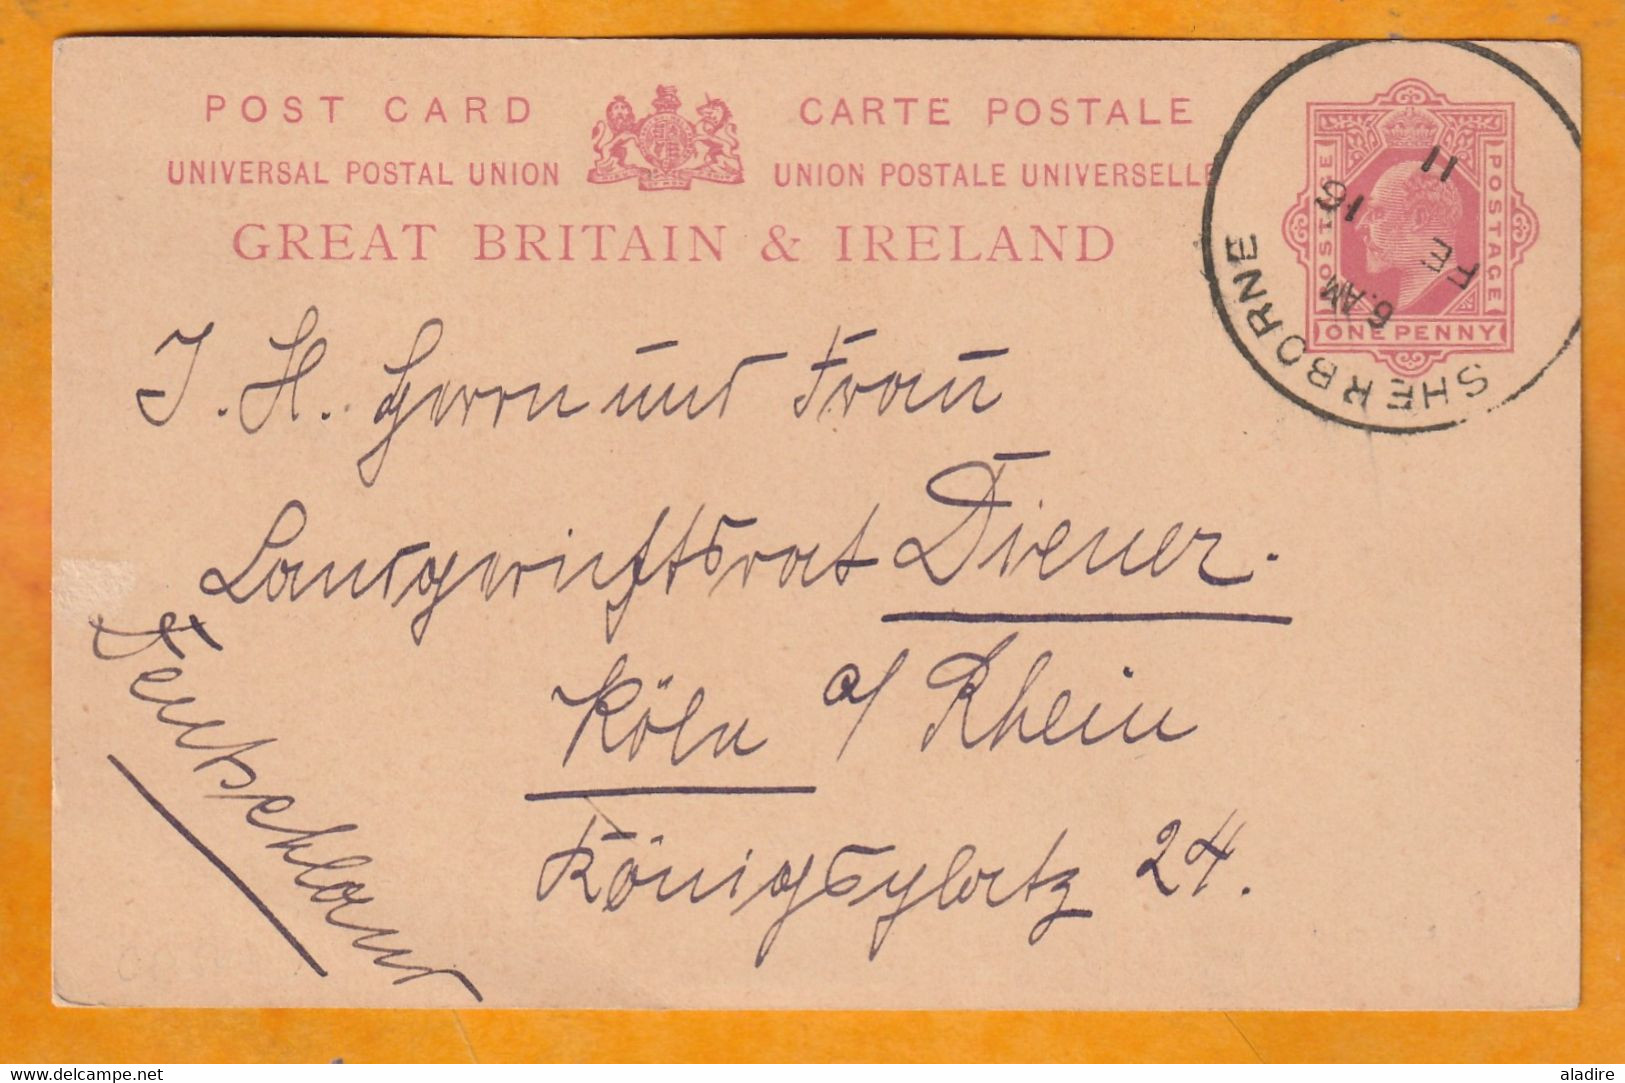 POST CARD
CARTE POSTALE
UNIVERSAL POSTAL UNION
UNION POSTALE UNIVERSELLE
GREAT BRITAIN & IRELAND
POSTAGE
POSTAGE
ONE PENNY
SHERBORNE
6.AM
FE
16
11
J. H. Herrn und Frau
Landgerichtsrat Diener.
Köln a/Rhein
Königsplatz 24.
Deutschland
delcampe.net
aladire